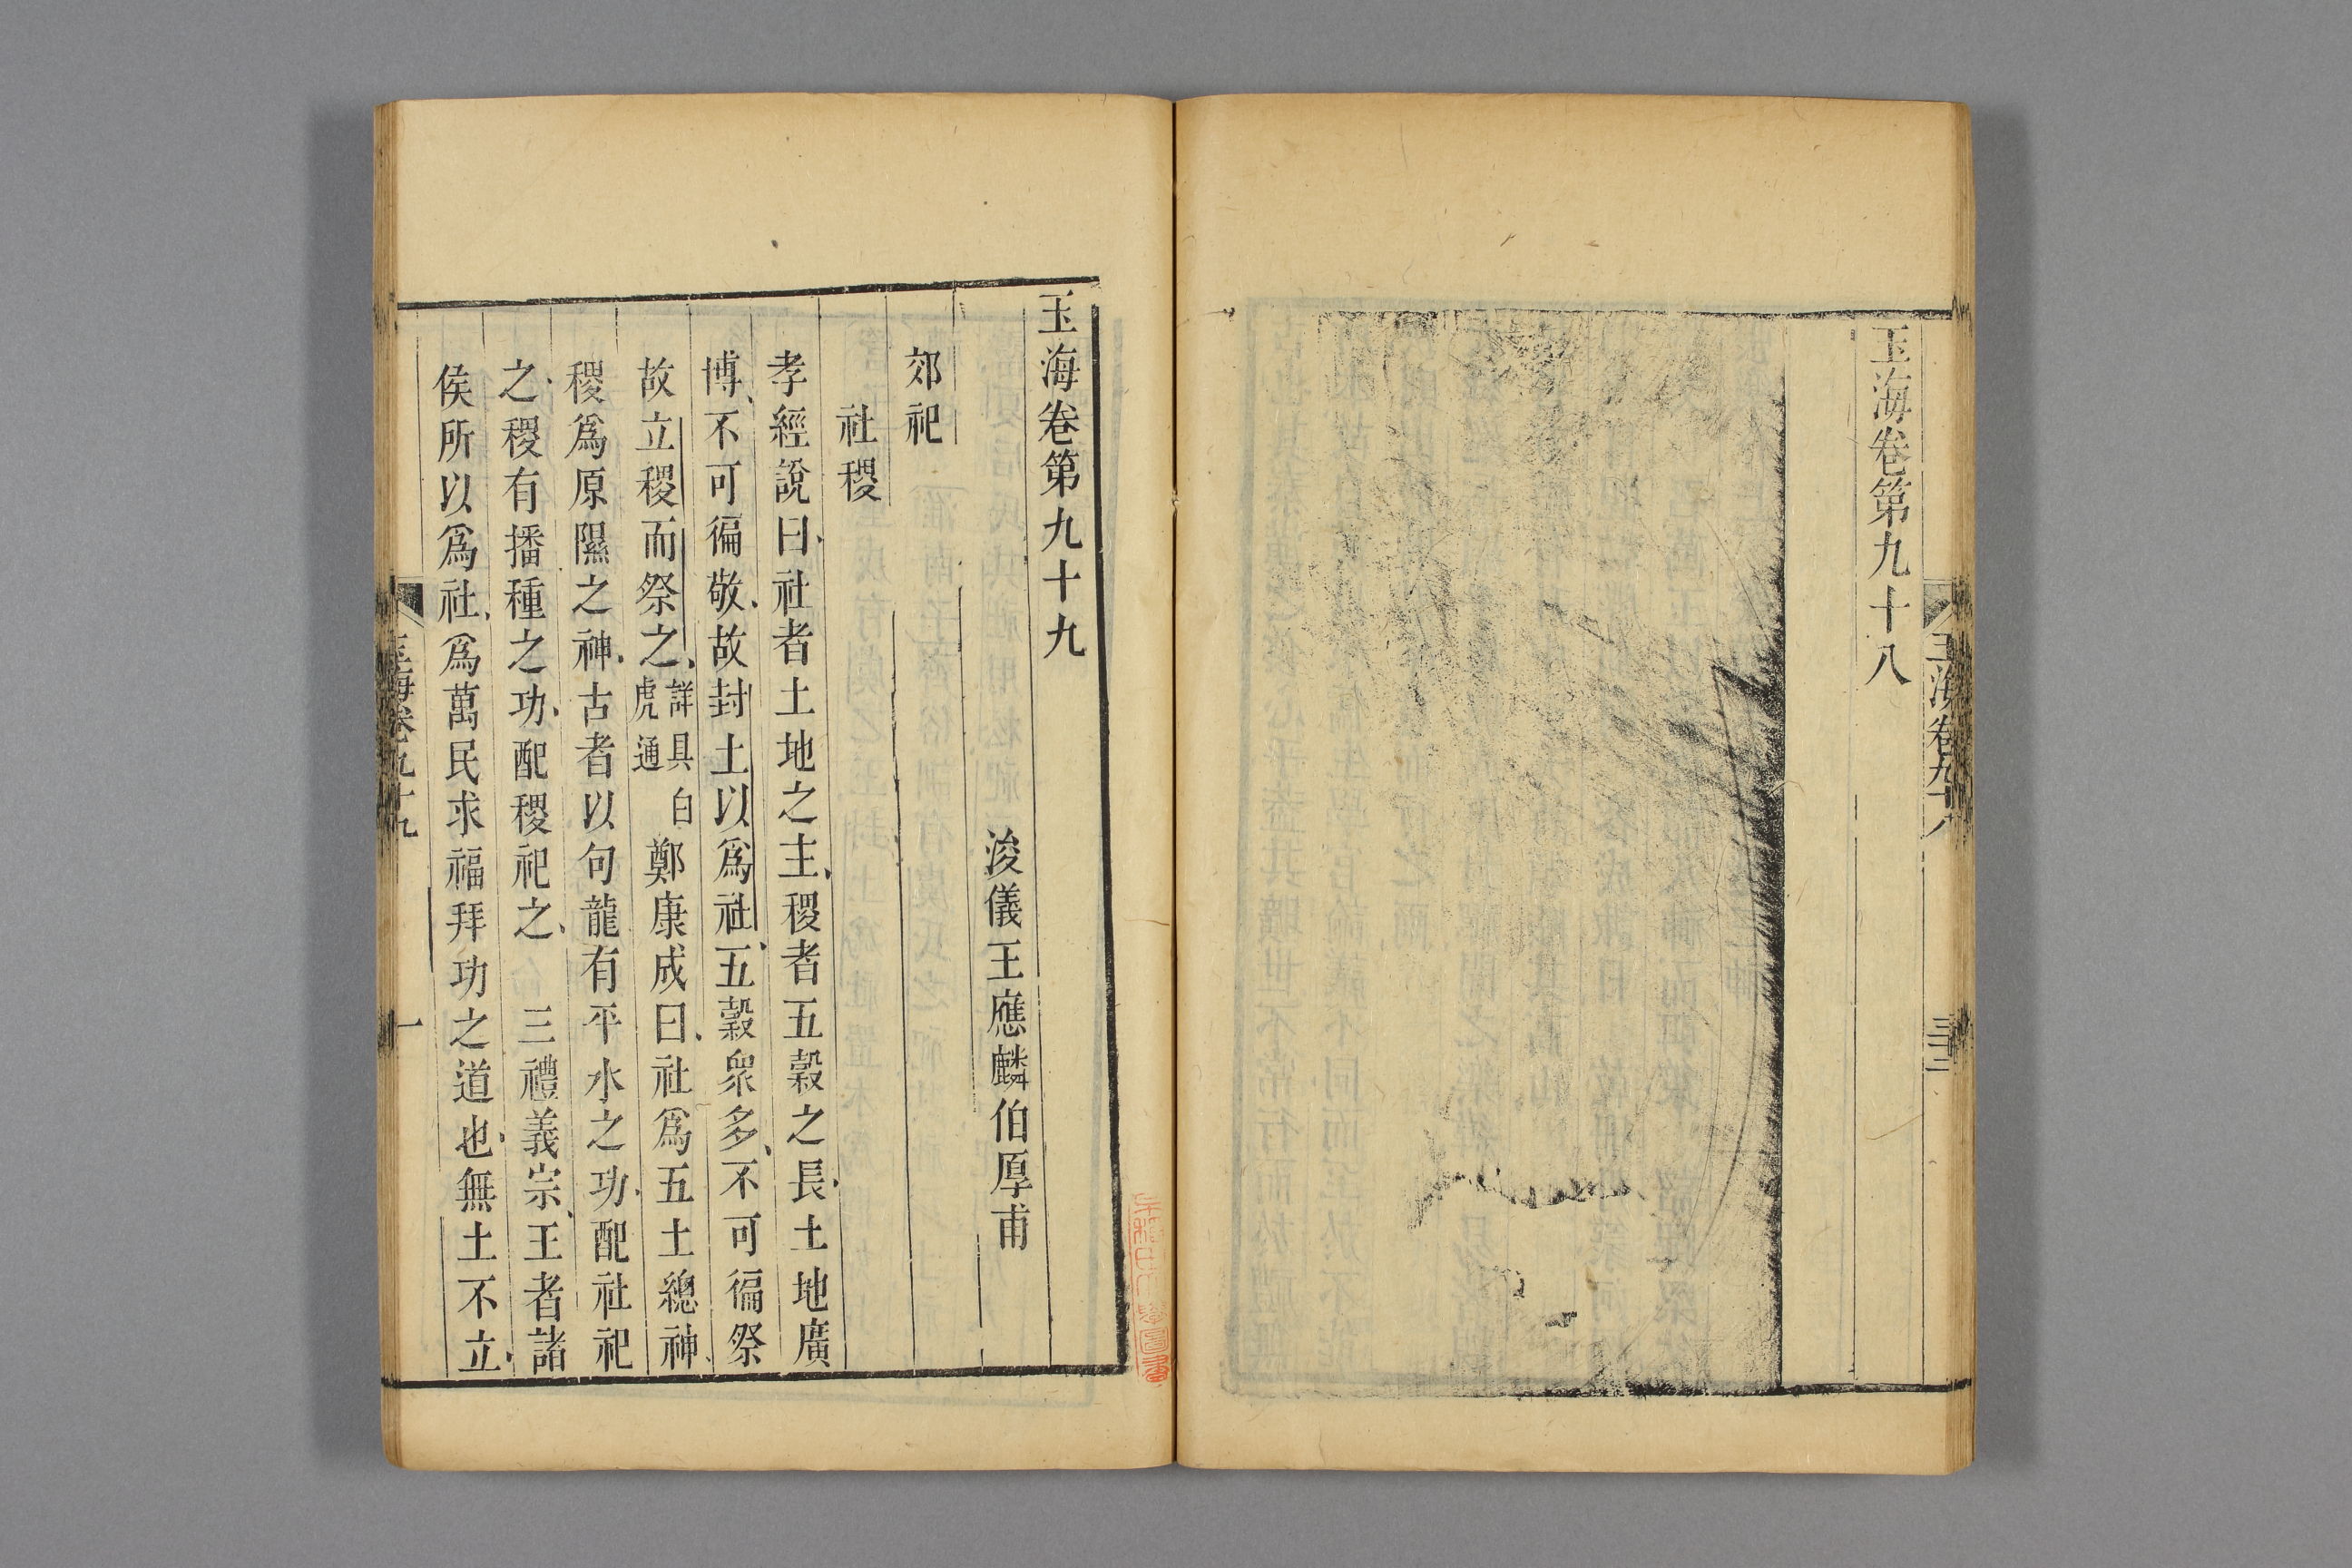 玉海卷第九十八
玉海卷九十八
三十二
玉海卷第九十九
浚儀王應麟伯厚甫
郊祀
社稷
孝經說曰社者土地之主稷者五穀之長土地廣
博不可徧敬故封土以爲社五穀衆多不可徧祭
故立稷而祭之詳具白虎通鄭康成曰社爲五土總神
稷爲原隰之神古者以句龍有平水之功配社祀
之稷有播種之功配稷祀之 三禮義宗王者諸
侯所以爲社爲萬民求福拜功之道也無土不立
玉海卷九十九
一